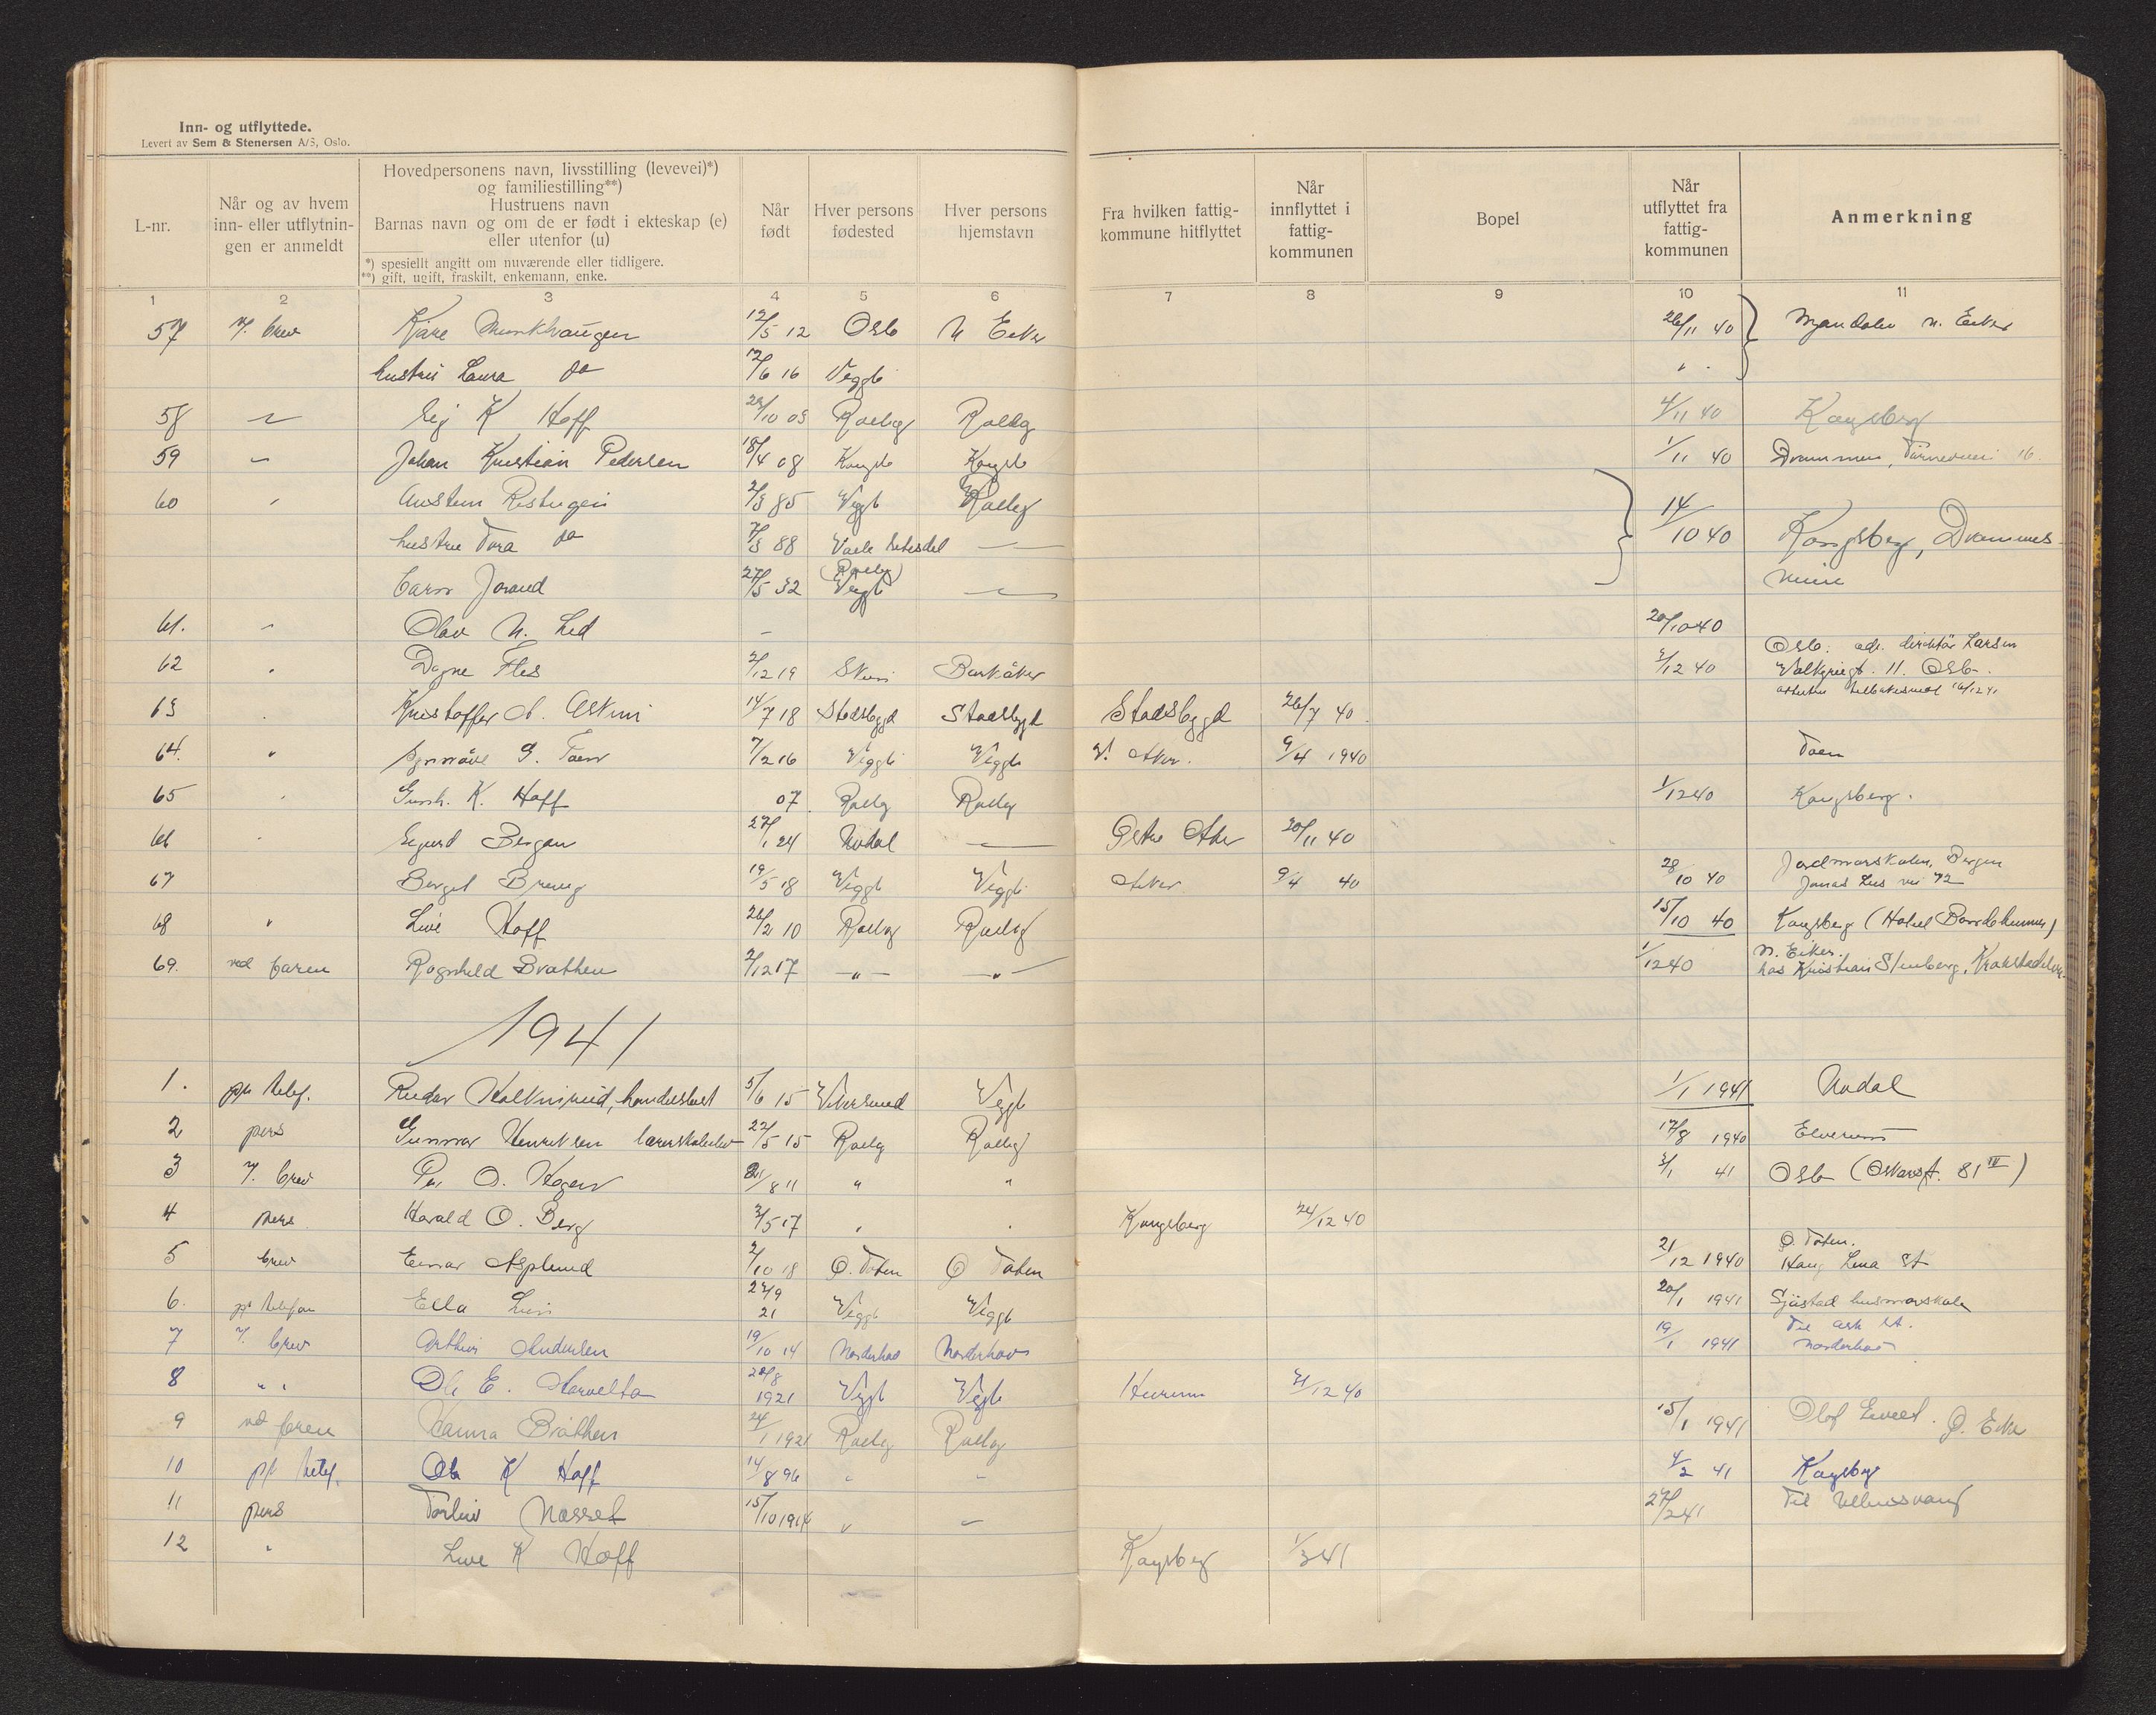 Inn- og utflyttede.
Levert av Sem & Stenersen A/S, Oslo.
L-nr.
Når og av hvem inn- eller utflytnin- gen er anmeldt
Hovedpersonens navn, livsstilling (levevei)*)
og familiestilling**)
Hustruens navn
Barnas navn og om de er født i ekteskap (e)
eller utenfor (u)
*) spesiellt angitt om nuværende eller tidligere.
**) gift, ugift, fraskilt, enkemann, enke.
Når født
Hver persons fødested
Hver persons hjemstavn
Fra hvilken fattig- kommune hitflyttet
Når innflyttet i fattig- kommunen
Bopel
Når utflyttet fra fattig- kommunen
Anmerkning
1 2 3 4 5 6 7 8 9 10 11
57 brev Kåre Munkhaugen 12/5 12 Oslo N Eiker 26/11 40 Mjøndalen N. Eiker
hustru Laura do 12/6 16 Veggli " "
58 K Hoff /10 09 Rollag Rollag 4/11 40 Kongsberg
59 " Johan Kristian Pedersen 18/4 08 Kongsb Kongsb 1/11 40 Drammen, 16
60 " 2/3 85 Veggli Rollag 14/10 40 Kongsberg, Drammens-
hustru Tora do 7/3 88
(Rollag)
barn Jorand 27/5 32 Veggli veien
61. " Olav N. Lid - 20/10 40
Oslo. adr. direktør Larsen
62 " Dagne Fles 2/12 19 Barkåker 3/12 40 Valkyriegt. 11. Oslo.
63 Kristoffer A. 14/7 18 Stadsbygd Stadsbygd Stadsbygd 26/7 40
64. " Synnøve G. Toen 7/2 16 Veggli Veggli V. Aker. 9/4 1940 Toen
65 " Gunh. K. Hoff 07. Rollag Rollag 1/12 40 Kongsberg.
66 " Sigurd Bergan 27/1 24 Uvdal Østre Aker 30/11 40
67 Berget 19/5 18 Veggli Veggli Aker 9/4 40 28/10 40 Jordmorskolen, Bergen
Jonas Lies vei 72
68 " Live Hoff 28/2 10 Rollag Rollag 15/10 40 Kongsberg (Hotel Bondeheimen)
N. Eiker
69. ved faren Ragnhild Bråthen 2/12 17 - " - - " - 1/12 40 hos Kristian Stenberg, Krokstadelva.
1941
1. pr telef. Reidar 5/6 15 Vikersund Veggli 1/1 1941 Uvdal
2 pers Gunnar Henriksen lærerskoleelev 22/5 15 Rollag Rollag 17/8 1940 Elverum
3 brev Per O. /8 11 " " 3/1 41 Oslo (Oskarsgt. 81 IV)
4 pers Harald O. Berg 3/5 17 " " Kongsberg 24/12 40
Ø. Toten.
5 brev Einar Asplund 2/10 18 Ø. Toten Ø Toten 21/12 1940 Haug Lena St
6. pr telefon Ella 24/9 21 Veggli Veggli 20/1 1941 Sjåstad husmorskole
Til Ask St.
7 brev Arthur Andersen 19/10 14 Norderhov Norderhov 19/1 1941 Norderhov
8 " " Ole E. 28/8 1921 Veggli Veggli Hurum 31/12 40
9 ved faren Hanna Bråthen 24/1 1921 Rollag Rollag 15/1 1941 Olof . Ø. Eiker
10 pr telef. Ole K Hoff 14/8 96 " " 4/2 41 Kongsberg
11 pers Torleiv Næsset 15/10 1914 " " 27/2 41 Til Ullensvang
12 " Live K Hoff Kongsberg 1/3 41